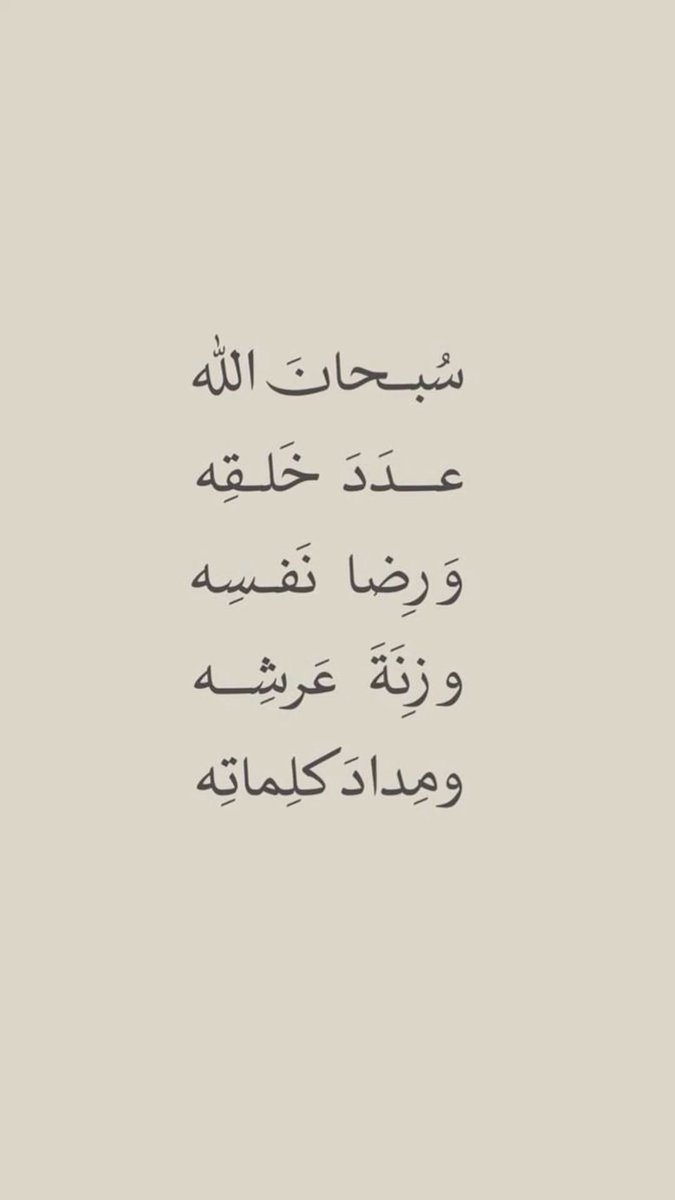 سُبـحانَ الله
عــدَدَ خَلـقِه
وَ رِضا نَفـسِه
و زِنَةَ عَرشِــه
ومِدادَ كلِماتِه